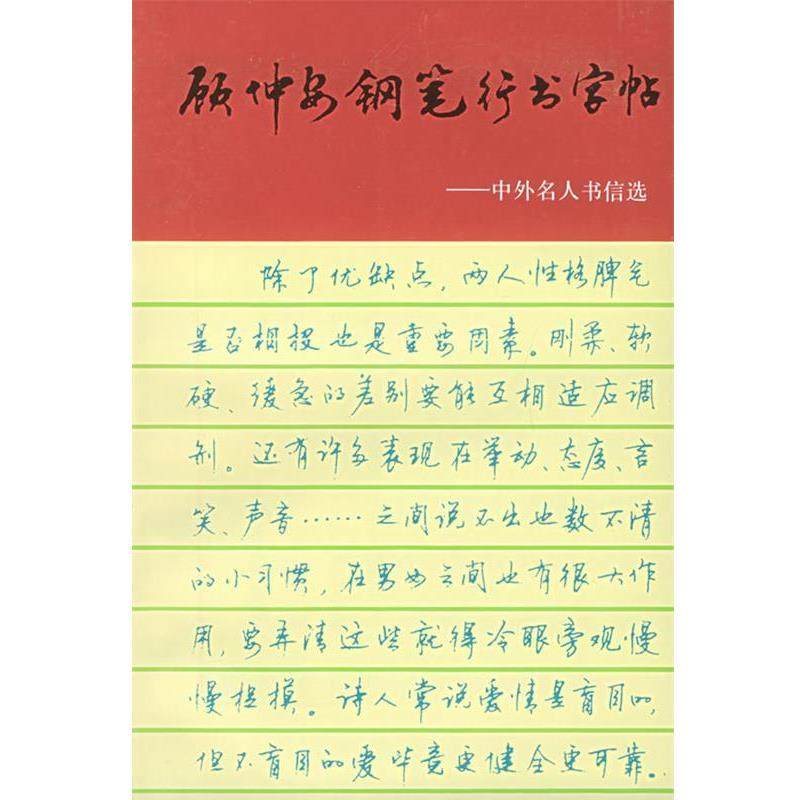 顾仲安钢笔行书字帖
——中外名人书信选
除了优缺点,两人性格脾气
是否相投也是重要因素。刚柔、软
硬、缓急的差别要能互相适应调
剂。还有许多表现在举动、态度、言
笑、声音……之间说不出也数不清
的小习惯,在男女之间也有很大作
用,要弄清这些就得冷眼旁观慢
慢捉摸。诗人常说爱情是盲目的,
但不盲目的爱毕竟更健全更可靠。